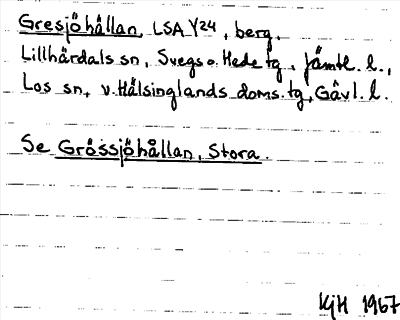 Gresjöhållan, LSA Y24, berg,
Lillhärdals sn, Svegs o. Hede tg, Jämtl. l.,
Los sn, v. Hälsinglands doms. tg, Gävl. l.
Se Gråssjöhållan, Stora.
KjH 1967